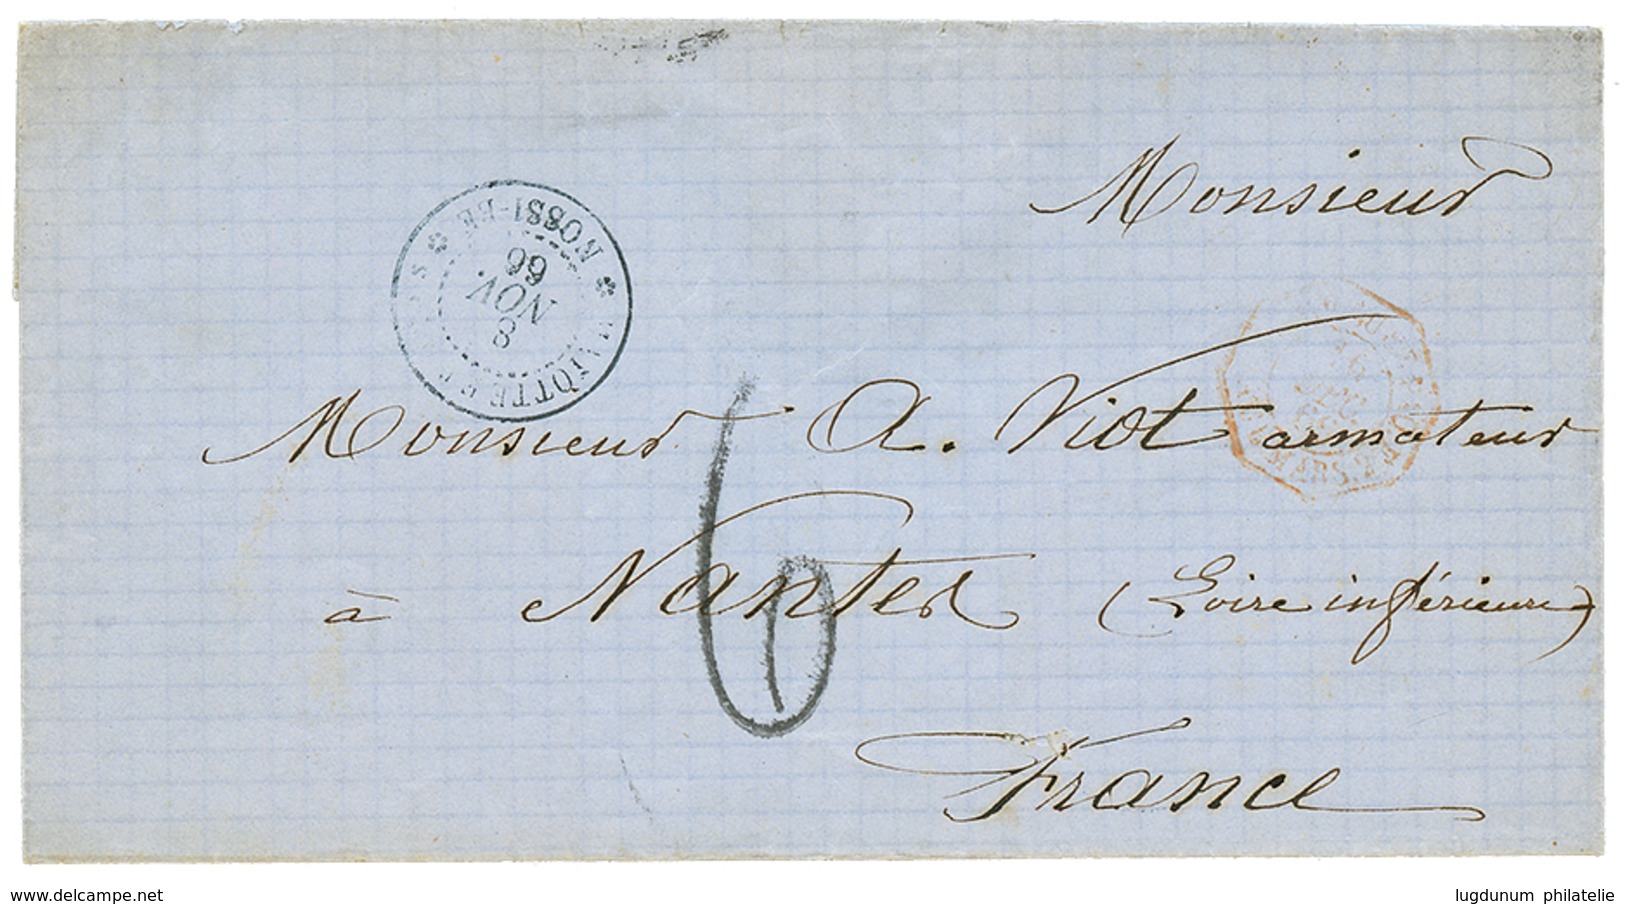 Monsieur
MAYOTTE ET
NOSSI-BE
8
NOV.
66
Monsieur A. Viot armateur
6
à Nantes (Loire inférieure)
France
www.delcampe.net
lugdunum philatelie